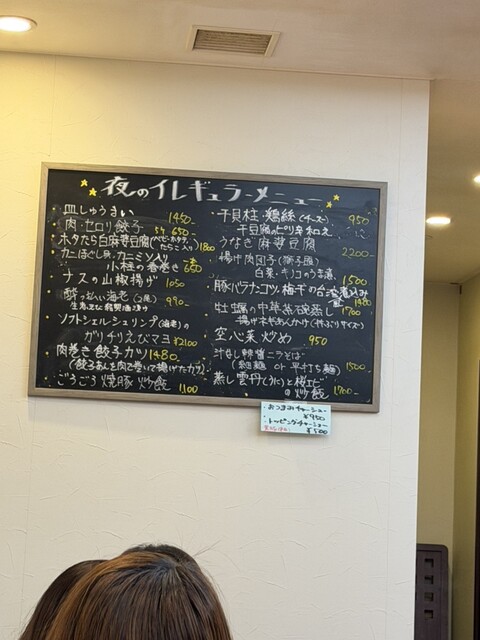 夜のイレギュラーメニュー
皿しゅうまい 1450-
肉・セロリ餃子 5ケ 650-
ホタたら白麻婆豆腐(ベビーホタテ、たらこ入り) 1800
カニほぐし身・カニミソ入り
小柱の春巻き 650
ナスの山椒揚げ 1050
酔っぱらい海老(2尾) 990-
生海老の紹興酒漬け
ソフトシェルシュリンプ(海老)の
ガリチリえびマヨ ¥2100
肉巻き餃子カツ 1480
(餃子あんを肉で巻いて揚げたカツ)
ごろごろ焼豚炒飯 1100
干貝柱・鶏絲(チーズ) 950
干豆腐のピリ辛和え
うなぎ麻婆豆腐 2200-
揚げ肉団子(獅子頭)
白菜・キノコのうま煮 1500
豚バラナンコツ、梅干の台湾煮込み 1480
牡蠣の中華茶碗蒸し 1700
揚げネギあんかけ
空心菜炒め 950
汁なし辣醤ニラそば
(細麺 or 平打ち麺) 1500
蒸し雲丹(うに)と桜エビ
の炒飯 1700-
・おつまみチャーシュー
¥950
・トッピングチャーシュー
¥500